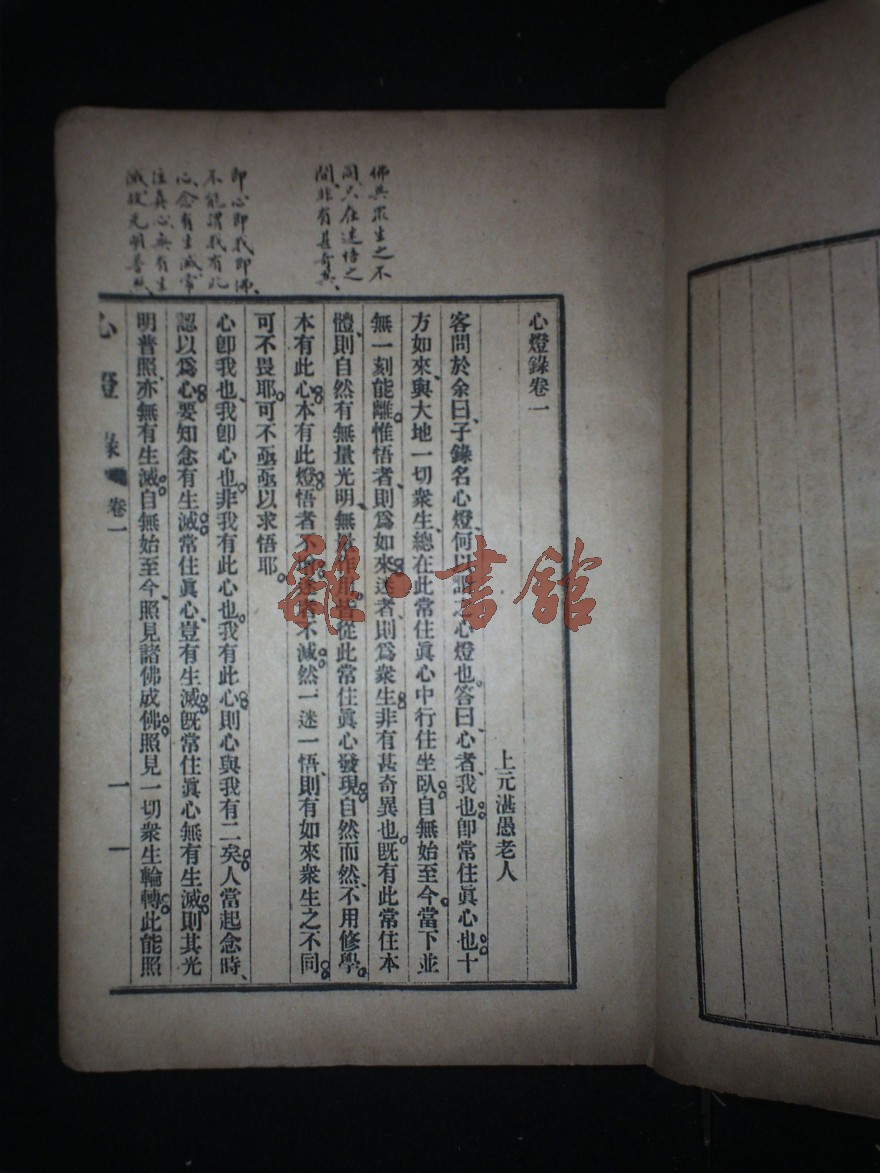 佛與眾生之不
同只在迷悟之
間非有甚奇異、
即心即我即佛、
不能謂我有此
心、念有生滅常
住真心無有生
滅故光明普照、
心燈錄卷一
上元湛愚老人
客問於余曰、子錄名心燈、何以謂之心燈也。答曰、心者、我也。卽常住眞心也。十
方如來、與大地一切衆生、總在此常住眞心中行住坐臥。自無始至今。當下並
無一刻能離。惟悟者、則爲如來。迷者、則爲衆生。非有甚奇異也。旣有此常住本
體、則自然有無量光明、無量作用、皆從此常住眞心發現。自然而然、不用修學。
本有此心。本有此燈。悟者不增。迷者不減。然一迷一悟、則有如來衆生之不同。
可不畏耶。可不亟亟以求悟耶。
心卽我也、我卽心也。非我有此心也。我有此心、則心與我有二矣。人當起念時、
認以爲心。要知念有生滅。常住眞心、豈有生滅。旣常住眞心無有生滅。則其光
明普照、亦無有生滅。自無始至今、照見諸佛成佛。照見一切衆生輪轉。此能照
心燈錄 卷一
一 一
雜·書館